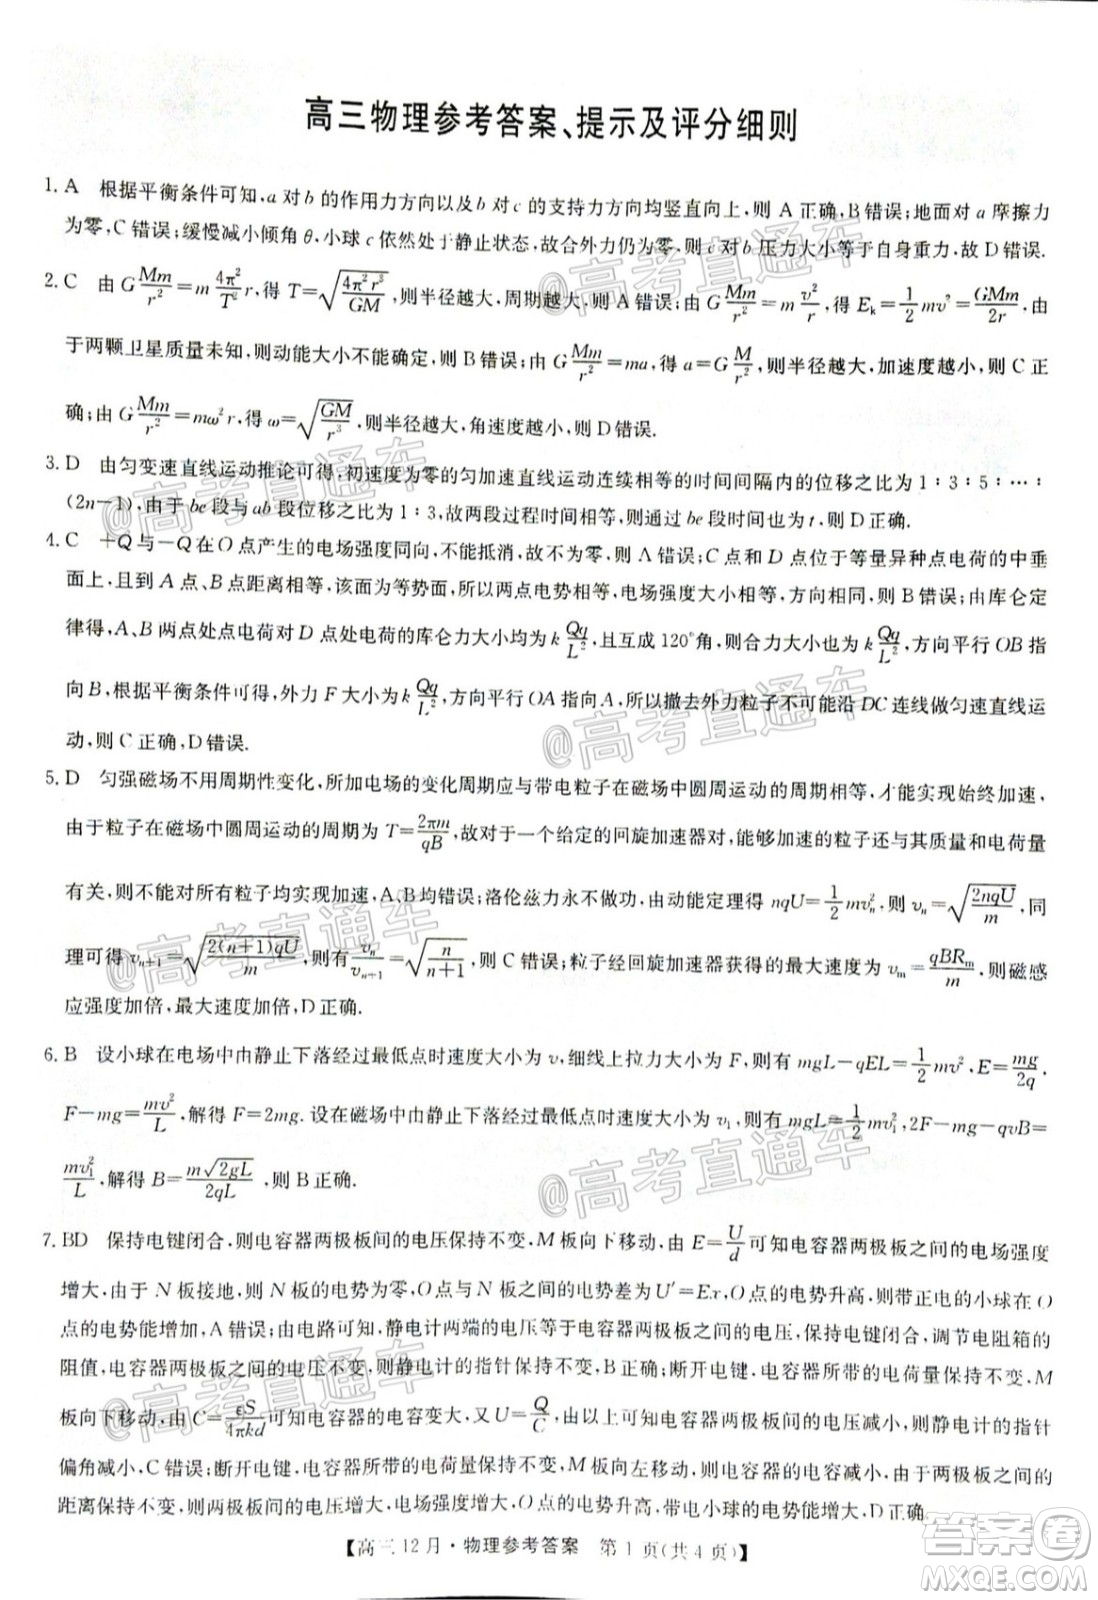 高三物理参考答案、提示及评分细则
1. A 根据平衡条件可知,a 对 b 的作用力方向以及 b 对 c 的支持力方向均竖直向上,则 A 正确,B 错误;地面对 a 摩擦力
为零,C 错误;缓慢减小倾角 θ,小球 c 依然处于静止状态,故合外力仍为零,则 c 对 b 压力大小等于自身重力,故 D 错误.
2. C 由 G\frac{Mm}{r^2}=m\frac{4π^2}{T^2}r,得 T=\sqrt{\frac{4π^2r^3}{GM}},则半径越大,周期越大,则 A 错误;由 G\frac{Mm}{r^2}=m\frac{v^2}{r},得 E_k=\frac{1}{2}mv^2=\frac{GMm}{2r}.由
于两颗卫星质量未知,则动能大小不能确定,则 B 错误;由 G\frac{Mm}{r^2}=ma,得 a=G\frac{M}{r^2},则半径越大,加速度越小,则 C 正
确;由 G\frac{Mm}{r^2}=mω^2r,得 ω=\sqrt{\frac{GM}{r^3}},则半径越大,角速度越小,则 D 错误.
3. D 由匀变速直线运动推论可得,初速度为零的匀加速直线运动连续相等的时间间隔内的位移之比为 1∶3∶5∶…∶
(2n−1),由于 bc 段与 ab 段位移之比为 1∶3,故两段过程时间相等,则通过 bc 段时间也为 t,则 D 正确.
4. C +Q 与−Q 在 O 点产生的电场强度同向,不能抵消,故不为零,则 A 错误;C 点和 D 点位于等量异种点电荷的中垂
面上,且到 A 点、B 点距离相等,该面为等势面,所以两点电势相等,电场强度大小相等,方向相同,则 B 错误;由库仑定
律得,A、B 两点处点电荷对 D 点处电荷的库仑力大小均为 k\frac{Qq}{L^2},且互成 120°角,则合力大小也为 k\frac{Qq}{L^2},方向平行 OB 指
向 B,根据平衡条件可得,外力 F 大小为 k\frac{Qq}{L^2},方向平行 OA 指向 A,所以撤去外力粒子不可能沿 DC 连线做匀速直线运
动,则 C 正确,D 错误.
5. D 匀强磁场不用周期性变化,所加电场的变化周期应与带电粒子在磁场中圆周运动的周期相等,才能实现始终加速,
由于粒子在磁场中圆周运动的周期为 T=\frac{2πm}{qB},故对于一个给定的回旋加速器对,能够加速的粒子还与其质量和电荷量
有关,则不能对所有粒子均实现加速,A、B 均错误;洛伦兹力永不做功,根据动能定理可得 nqU=\frac{1}{2}mv_n^2,则 v_n=\sqrt{\frac{2nqU}{m}},同
理可得 v_{n+1}=\sqrt{\frac{2(n+1)qU}{m}},则有\frac{v_n}{v_{n+1}}=\sqrt{\frac{n}{n+1}},则 C 错误;粒子经回旋加速器获得的最大速度为 v_m=\frac{qBR_m}{m},则磁感
应强度加倍,最大速度加倍,D 正确.
6. B 设小球在电场中由静止下落经过最低点时速度大小为 v,细线上拉力大小为 F,则有 mgL−qEL=\frac{1}{2}mv^2,E=\frac{mg}{2q}.
F−mg=\frac{mv^2}{L},解得 F=2mg.设在磁场中由静止下落经过最低点时速度大小为 v_1,则有 mgL=\frac{1}{2}mv_1^2,2F−mg−qvB=
\frac{mv_1^2}{L},解得 B=\frac{m\sqrt{2gL}}{2qL},则 B 正确.
7. BD 保持电键闭合,则电容器两极板间的电压保持不变,M 板向下移动,由 E=\frac{U}{d}可知电容器两极板之间的电场强度
增大,由于 N 板接地,则 N 板的电势为零,O 点与 N 板之间的电势差为 U'=Ex,O 点的电势升高,则带正电的小球在 O
点的电势能增加,A 错误;由电路可知,静电计两端的电压等于电容器两极板之间的电压,保持电键闭合,调节电阻箱的
阻值,电容器两极板之间的电压不变,则静电计的指针保持不变,B 正确;断开电键,电容器所带的电荷量保持不变,M
板向下移动,由 C=\frac{εS}{4πkd}可知电容器的电容变大,又 U=\frac{Q}{C},由以上可得电容器两极板间的电压减小,则静电计的指针
偏角减小,C 错误;断开电键、电容器所带的电荷量保持不变,M 板向左移动,则电容器的电容减小,由于两极板之间的
距离保持不变,则两极板间的电压增大、电场强度增大,O 点的电势升高,带电小球的电势能增大,D 正确.
【高三 12 月·物理参考答案 第 1 页(共 4 页)】
@高考直通车
@高考直通车
@高考直通车
@高考直通车
@高考直通车
@高考直通车
作业帮
MXQE.COM